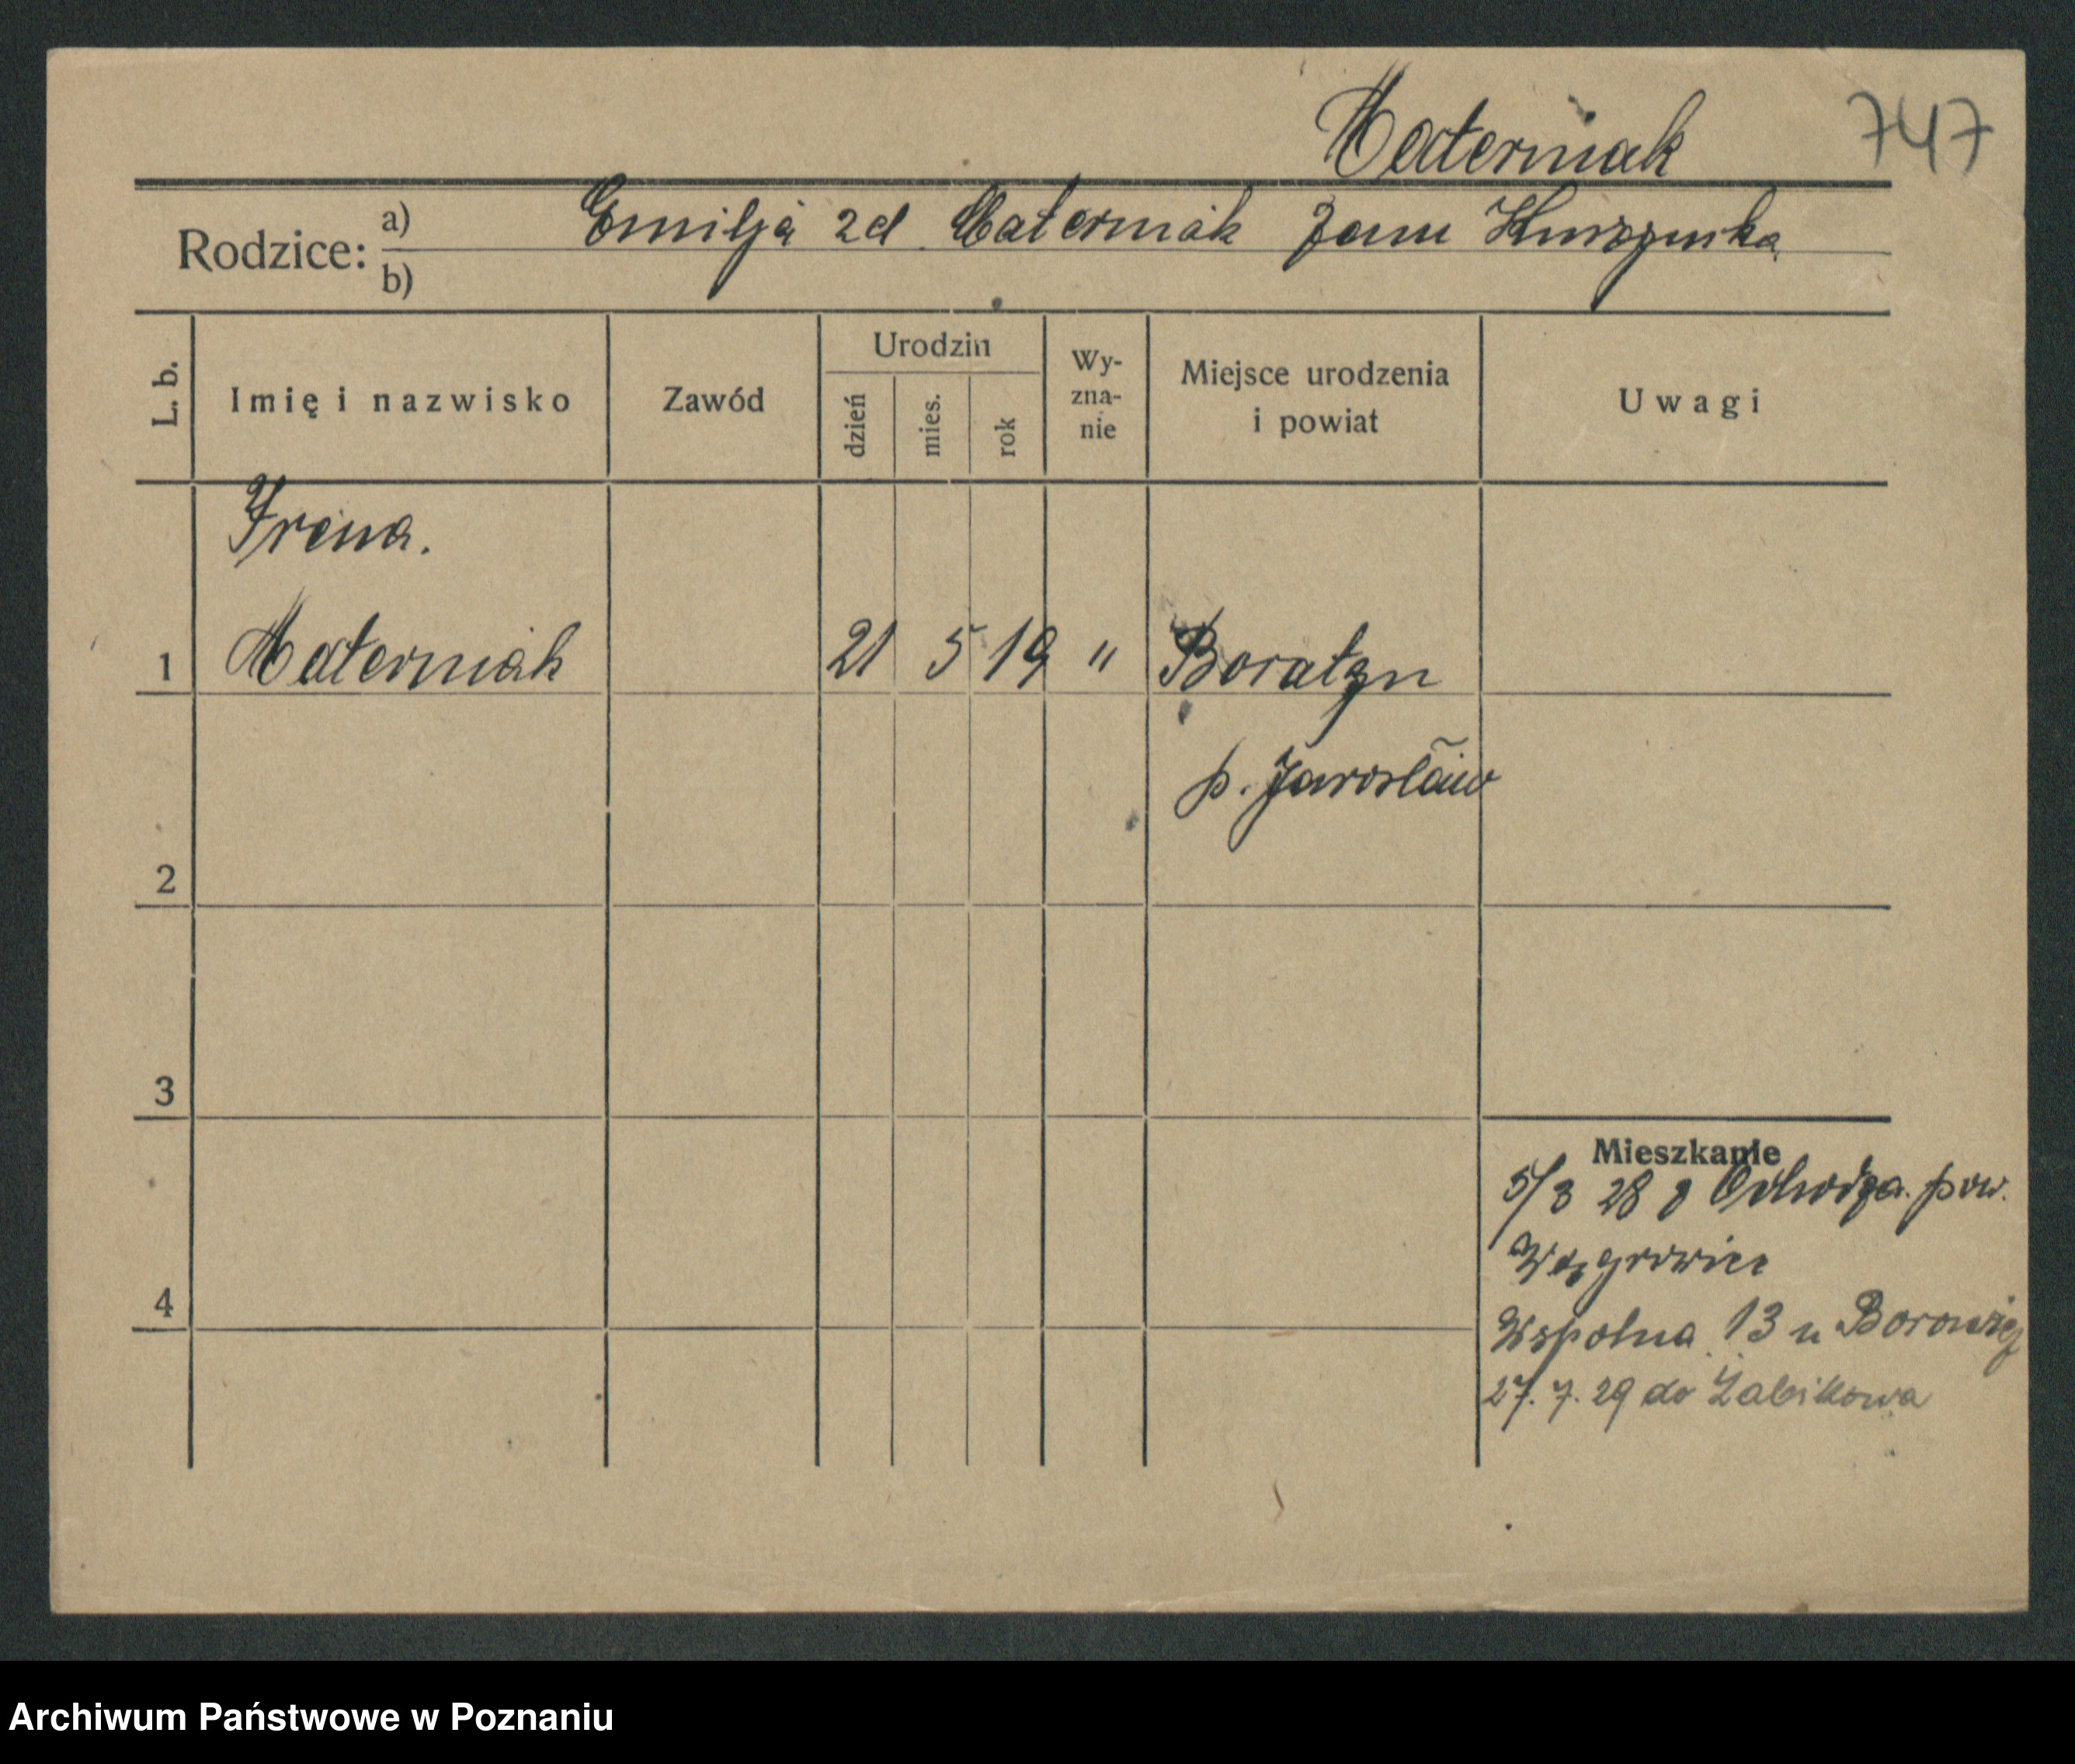 Materniak 747
Rodzice: a) Emilja zd Materniak zam
b)
L. b.
Imię i nazwisko
Zawód
Urodzin
dzień
mies.
rok
Wy-
zna-
nie
Miejsce urodzenia
i powiat
Uwagi
Irena.
1 Materniak 21 5 19 " Boratyn
p. Jarosław
2
3
4
Mieszkanie
5/3 28 pow.
Wągrowiec
Wspolna 13 u
27. 7. 29 do Żabikowa
Archiwum Państwowe w Poznaniu